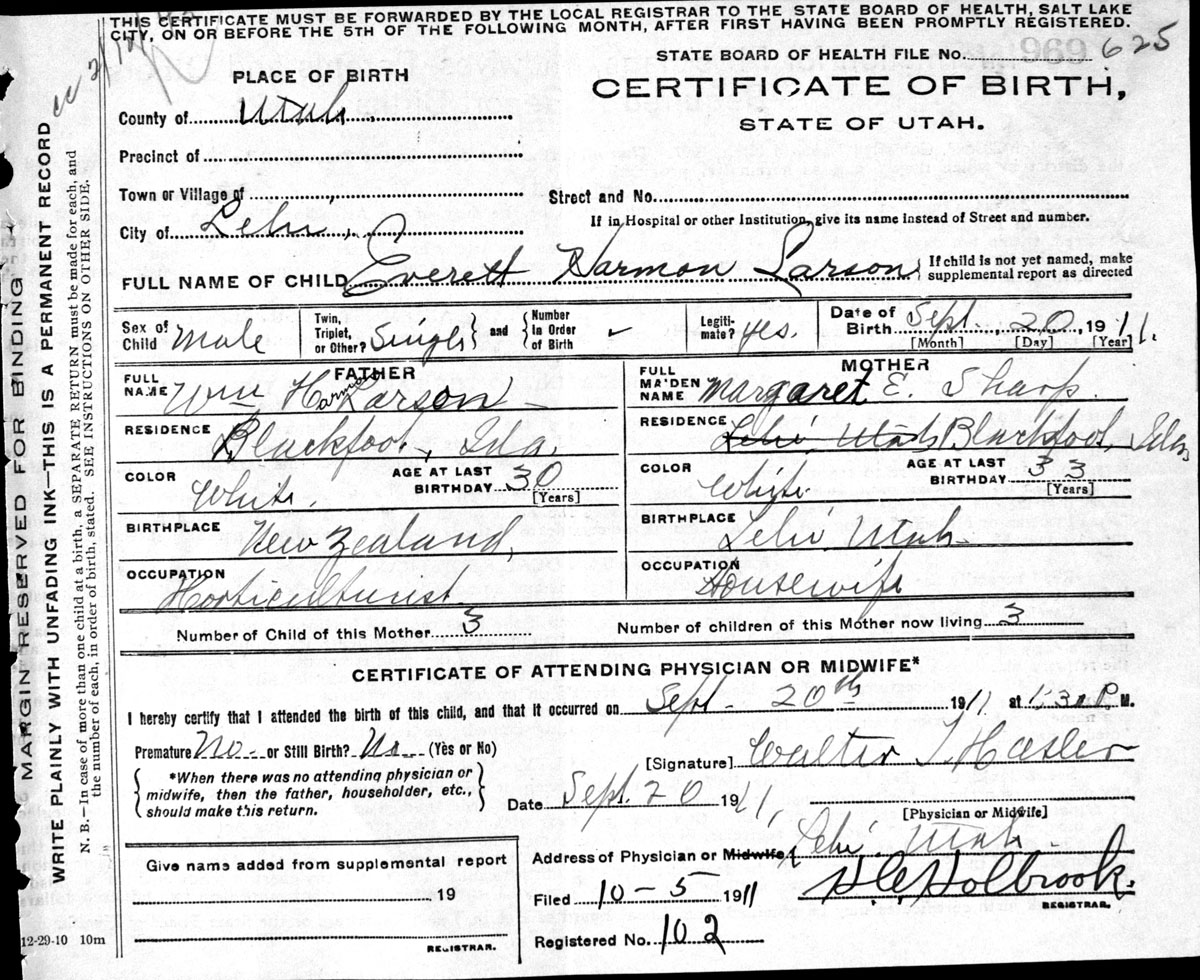 THIS CERTIFICATE MUST BE FORWARDED BY THE LOCAL REGISTRAR TO THE STATE BOARD OF HEALTH, SALT LAKE
CITY, ON OR BEFORE THE 5TH OF THE FOLLOWING MONTH, AFTER FIRST HAVING BEEN PROMPTLY REGISTERED.
STATE BOARD OF HEALTH FILE No. 625
PLACE OF BIRTH
CERTIFICATE OF BIRTH,
STATE OF UTAH.
County of Utah.
Precinct of
Town or Village of
Street and No.
City of Lehi,
If in Hospital or other Institution, give its name instead of Street and number.
FULL NAME OF CHILD Everett Harmon Larson
If child is not yet named, make
supplemental report as directed
Sex of Child Male
Twin, Triplet, or Other? Single and Number In Order of Birth ✓
Legitimate? yes.
Date of Birth Sept., 20, 1911.
[Month] [Day] [Year]
FATHER
FULL NAME Wm Harmon Larson
RESIDENCE Blackfoot, Ida.
COLOR White.
AGE AT LAST BIRTHDAY 30
[Years]
BIRTHPLACE New Zealand,
OCCUPATION Horticulturist
MOTHER
FULL MAIDEN NAME Margaret E. Sharp.
RESIDENCE Lehi Utah Blackfoot, Ida
COLOR White.
AGE AT LAST BIRTHDAY 33
[Years]
BIRTHPLACE Lehi Utah
OCCUPATION Housewife
Number of Child of this Mother 3
Number of children of this Mother now living 3
CERTIFICATE OF ATTENDING PHYSICIAN OR MIDWIFE*
I hereby certify that I attended the birth of this child, and that it occurred on Sept 20th 1911 at P. M.
Premature No or Still Birth? No (Yes or No)
[Signature] Walter T Hasler
*When there was no attending physician or
midwife, then the father, householder, etc.,
should make this return.
Date Sept. 20 1911,
[Physician or Midwife]
Give name added from supplemental report
19
REGISTRAR.
Address of Physician or Midwife Lehi Utah.
Filed 10-5 1911
Registered No. 102
Holbrook.
REGISTRAR.
12-29-10 10m
MARGIN RESERVED FOR BINDING
WRITE PLAINLY WITH UNFADING INK—THIS IS A PERMANENT RECORD
N. B.—In case of more than one child at a birth, a SEPARATE RETURN must be made for each, and
the number of each, in order of birth, stated. SEE INSTRUCTIONS ON OTHER SIDE.